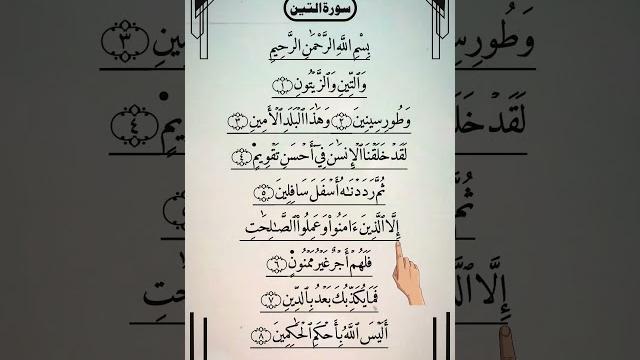 سورة التين
بِسْمِ اللَّهِ الرَّحْمَٰنِ الرَّحِيمِ
وَٱلتِّينِ وَٱلزَّيْتُونِ ١
وَطُورِ سِينِينَ ٢ وَهَٰذَا ٱلْبَلَدِ ٱلْأَمِينِ ٣
لَقَدْ خَلَقْنَا ٱلْإِنسَٰنَ فِىٓ أَحْسَنِ تَقْوِيمٍ ٤
ثُمَّ رَدَدْنَٰهُ أَسْفَلَ سَافِلِينَ ٥
إِلَّا ٱلَّذِينَ ءَامَنُوا۟ وَعَمِلُوا۟ ٱلصَّٰلِحَٰتِ
فَلَهُمْ أَجْرٌ غَيْرُ مَمْنُونٍ ٦
فَمَا يُكَذِّبُكَ بَعْدُ بِٱلدِّينِ ٧
أَلَيْسَ ٱللَّهُ بِأَحْكَمِ ٱلْحَٰكِمِينَ ٨